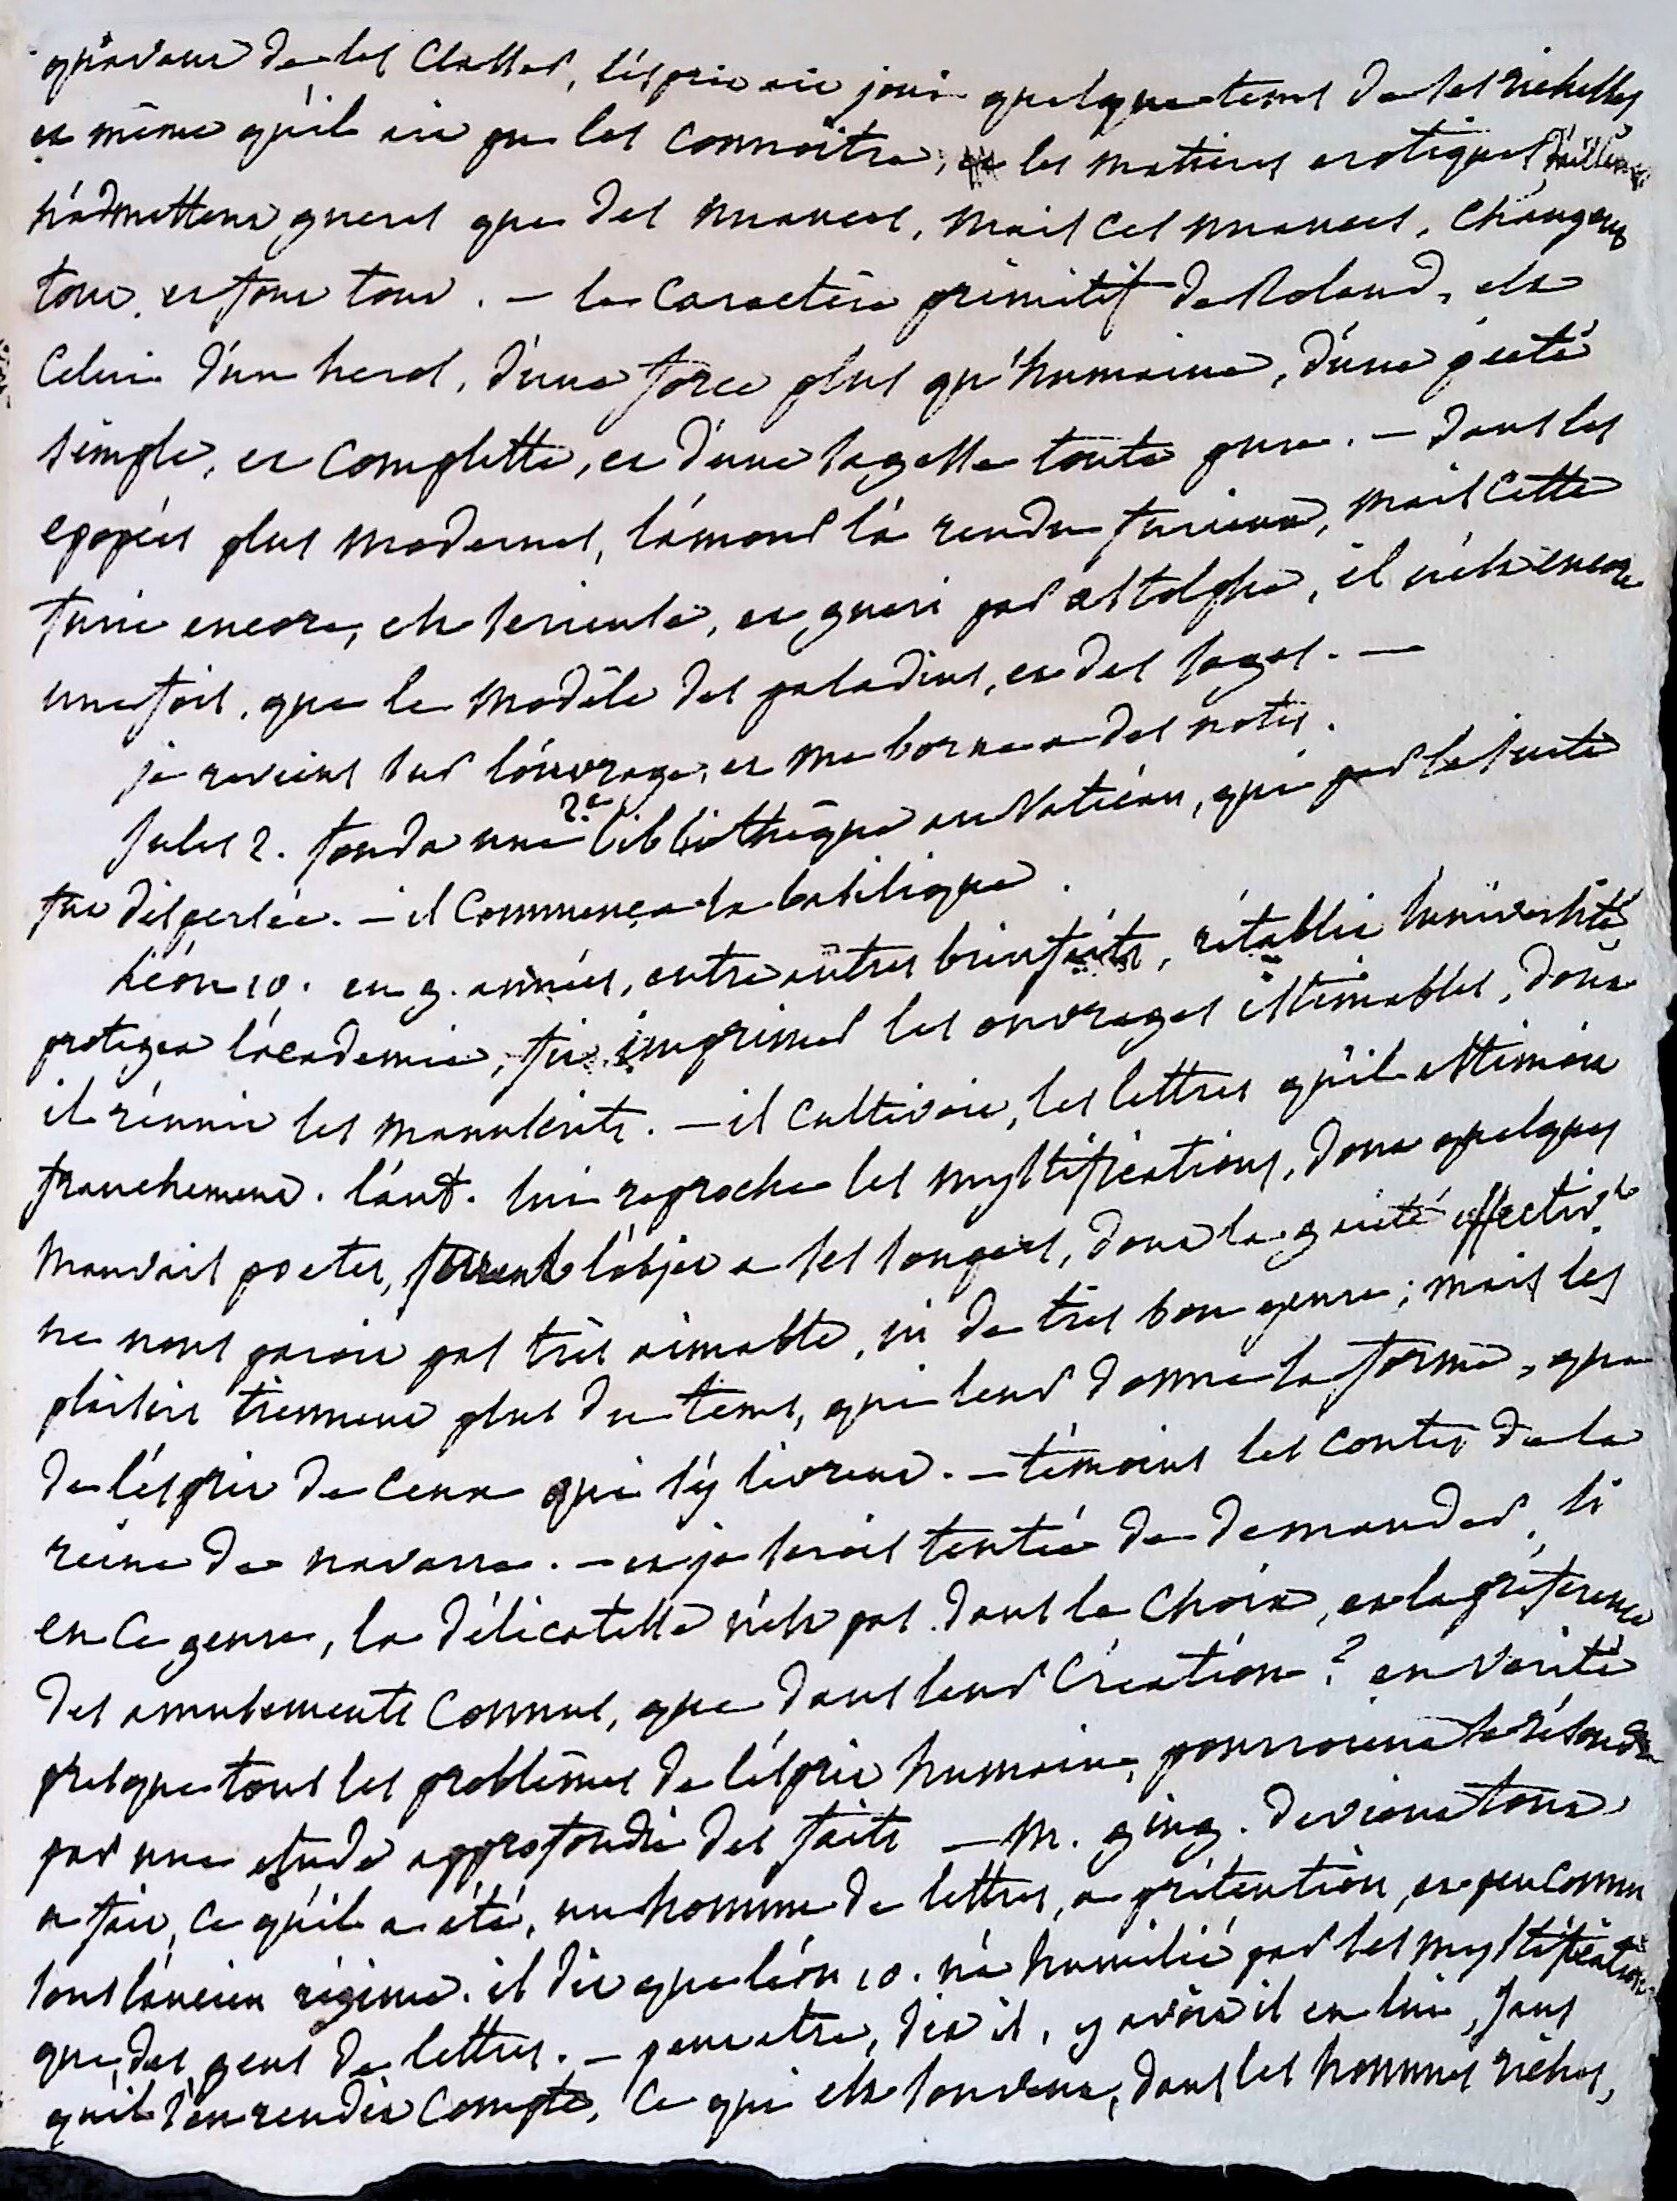 qu'avant de les classer, l'esprit ait joui quelque tems de ses richesses
et même qu'il ait pu les connoitre, les matieres erotiques d'ailleurs
n'admettent gueres que des nuances, mais ces nuances, changent
tout, et font tout. — le caractère primitif de Roland, est
celui d'un heros, d'une force plus qu'humaine, d'une piété
simple, et complette, et d'une sagesse toute pure. — dans les
epopées plus modernes, l'amour l'a rendu furieux, mais cette
furie encore, est serieuse, et gueri par astolphe, il n'est encore
une fois, que le modèle des paladins, et des sages. —
je reviens sur l'ouvrage, et me borne a des notes.
Jules 2. fonda une 2e bibliothèque au Vatican, qui par la suite
fut dispersée. — il commença la basilique.
Léon 10. en 9. années, entre autres bienfaits, rétablit l'université,
protegea l'academie, fit imprimer les ouvrages estimables, dont
il réunit les manuscrits. — il cultivoit, les lettres qu'il estimoit
franchement. l'aut. lui reproche les mystifications, dont quelques
mauvais poetes, furent l'objet a ses soupers, dont la gaieté effectivt
ne nous paroit pas très aimable, ni de très bon genre; mais les
plaisirs tiennent plus du tems, qui leur donne la forme, que
de l'esprit de ceux qui s'y livrent. — témoins les contes de la
reine de navarre. — et je serois tentée de demander, si
en ce genre, la délicatesse n'est pas dans le choix, et la préférence
des amusements connus, que dans leur création? en vérité
presque tous les problêmes de l'esprit humain, pourroient se résoudre
par une etude approfondie des faits — M. ging. devient tout
a fait, ce qu'il a été, un homme de lettres, a prétention, et peu connu
sous l'ancien régime. il dit que léon 10. n'a humilié par ses mystifications
que des gens de lettres. — peut etre, dit il, y avoit il en lui, sans
qu'il s'en rendit compte, ce qui est souvent, dans les hommes riches,